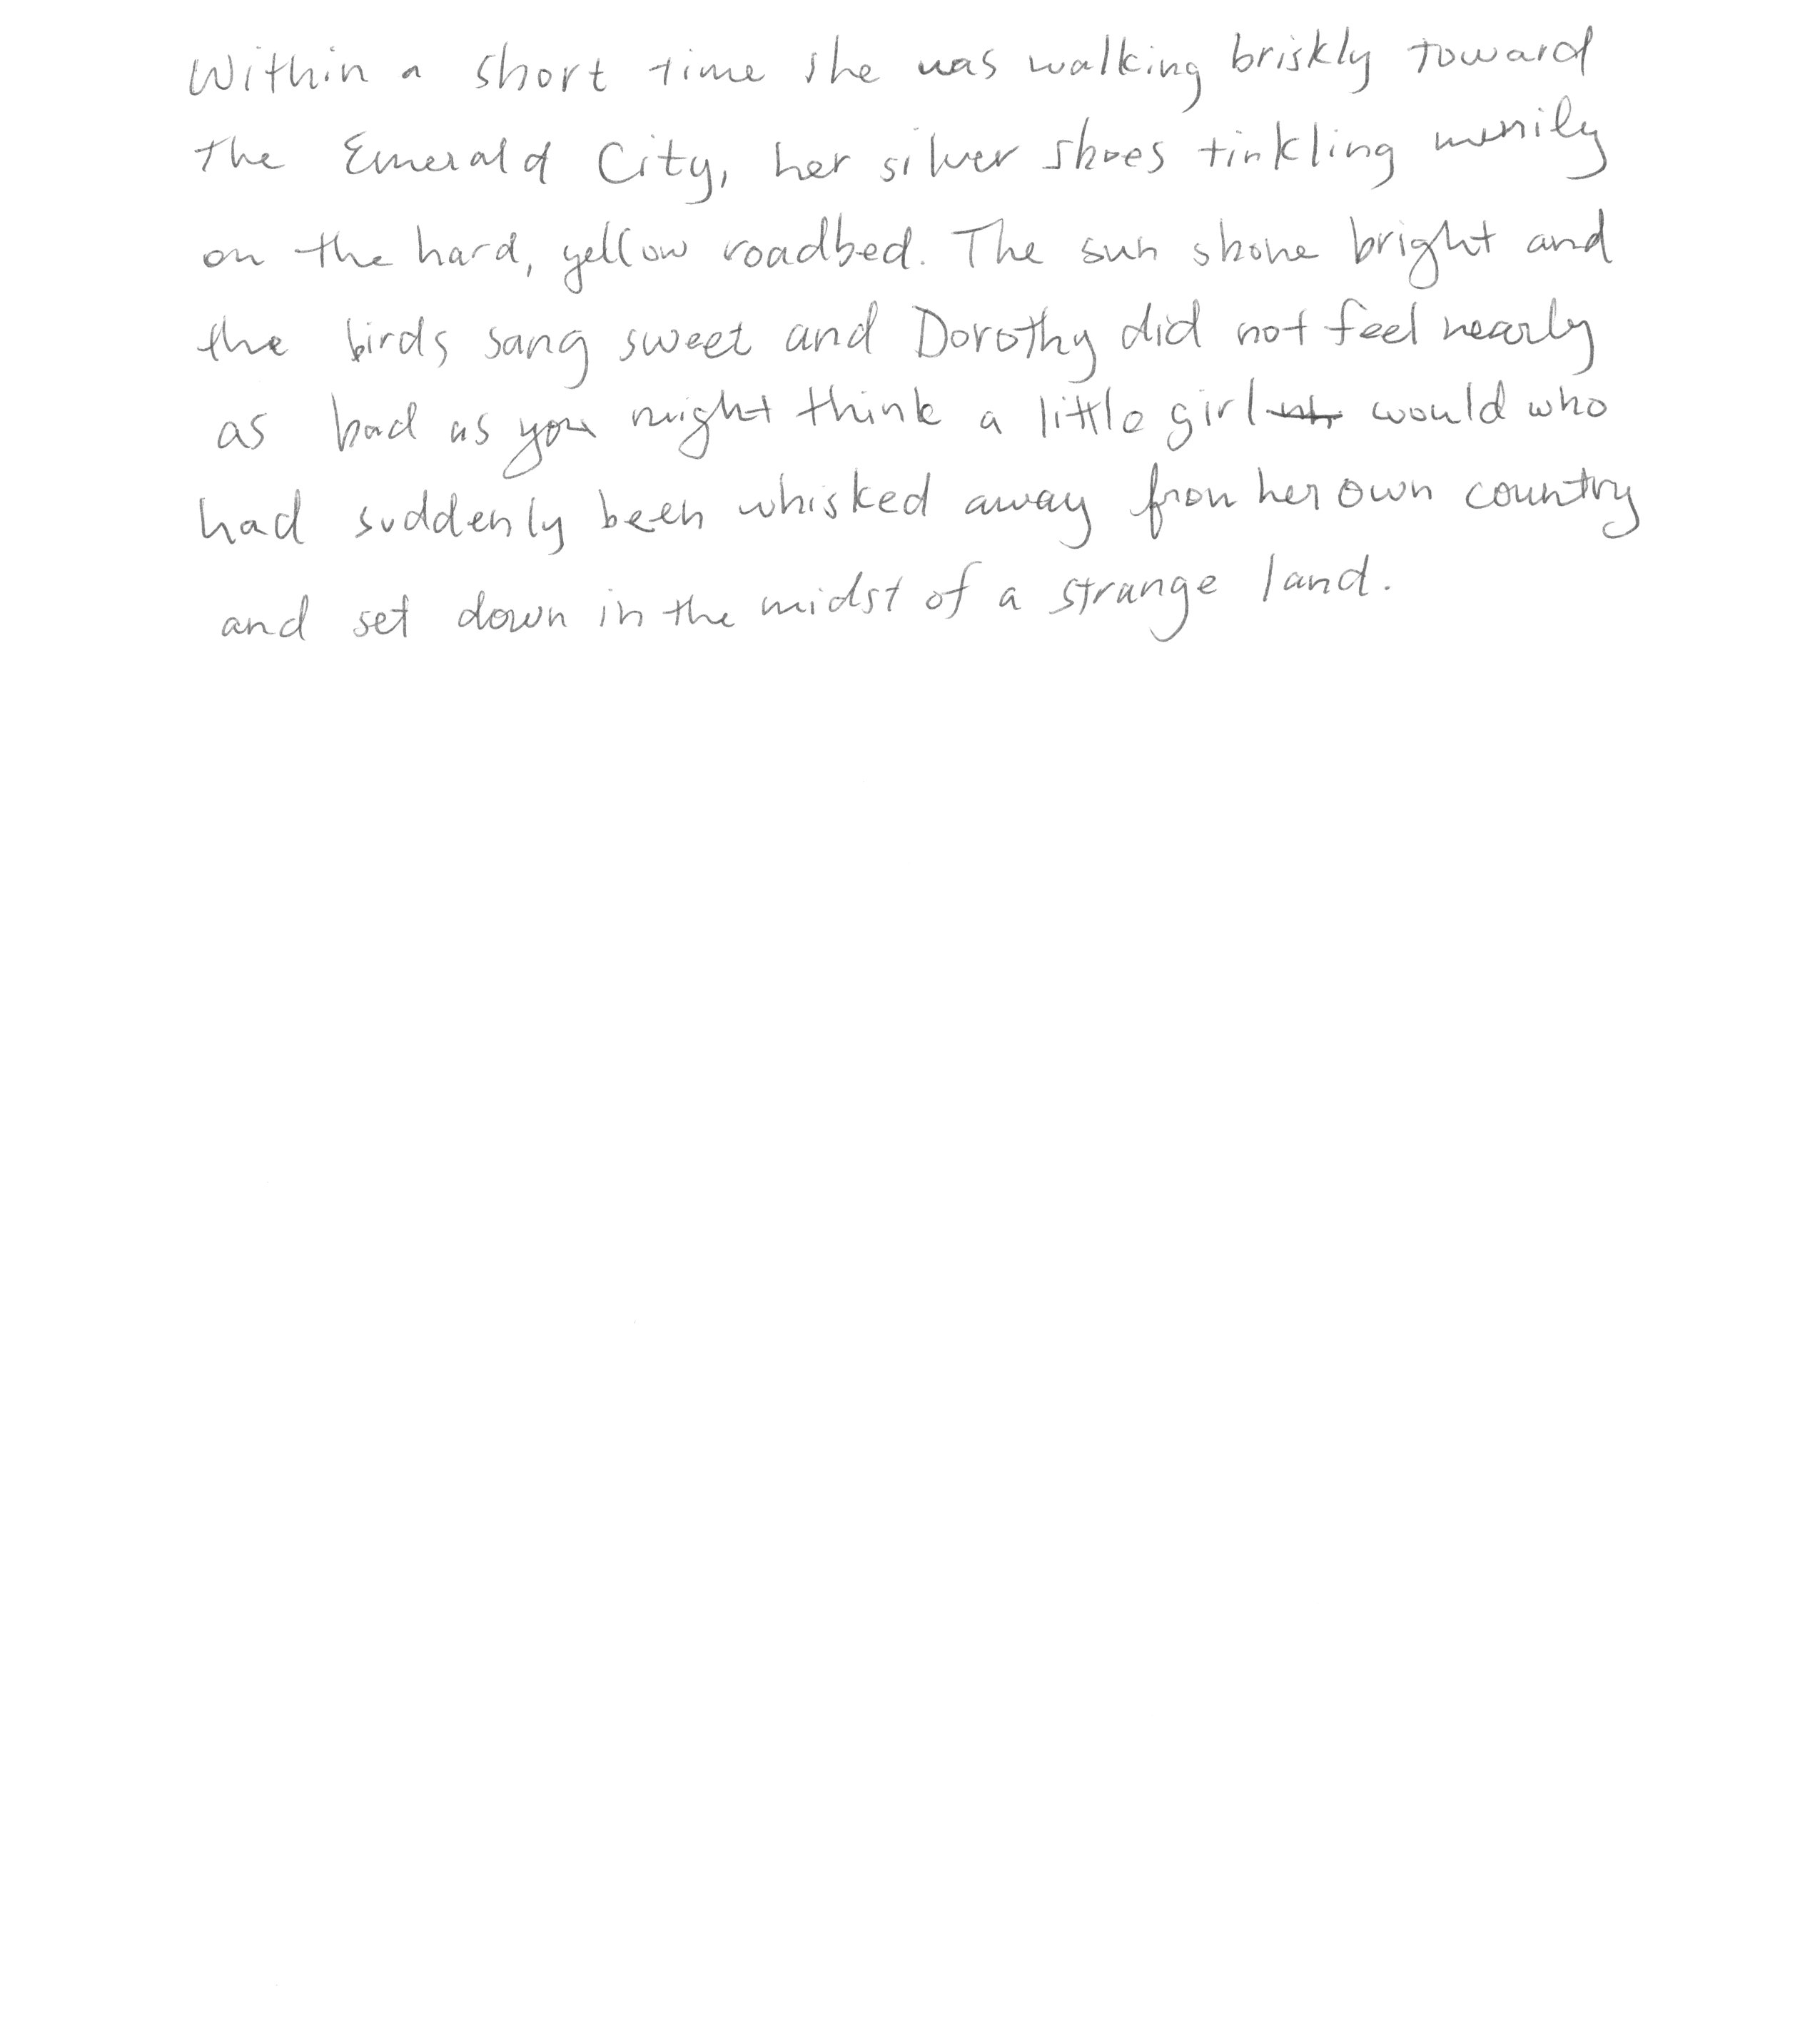 Within a short time she was walking briskly toward
the Emerald City, her silver shoes tinkling merrily
on the hard, yellow roadbed. The sun shone bright and
the birds sang sweet and Dorothy did not feel nearly
as bad as you might think a little girl would who
had suddenly been whisked away from her own country
and set down in the midst of a strange land.